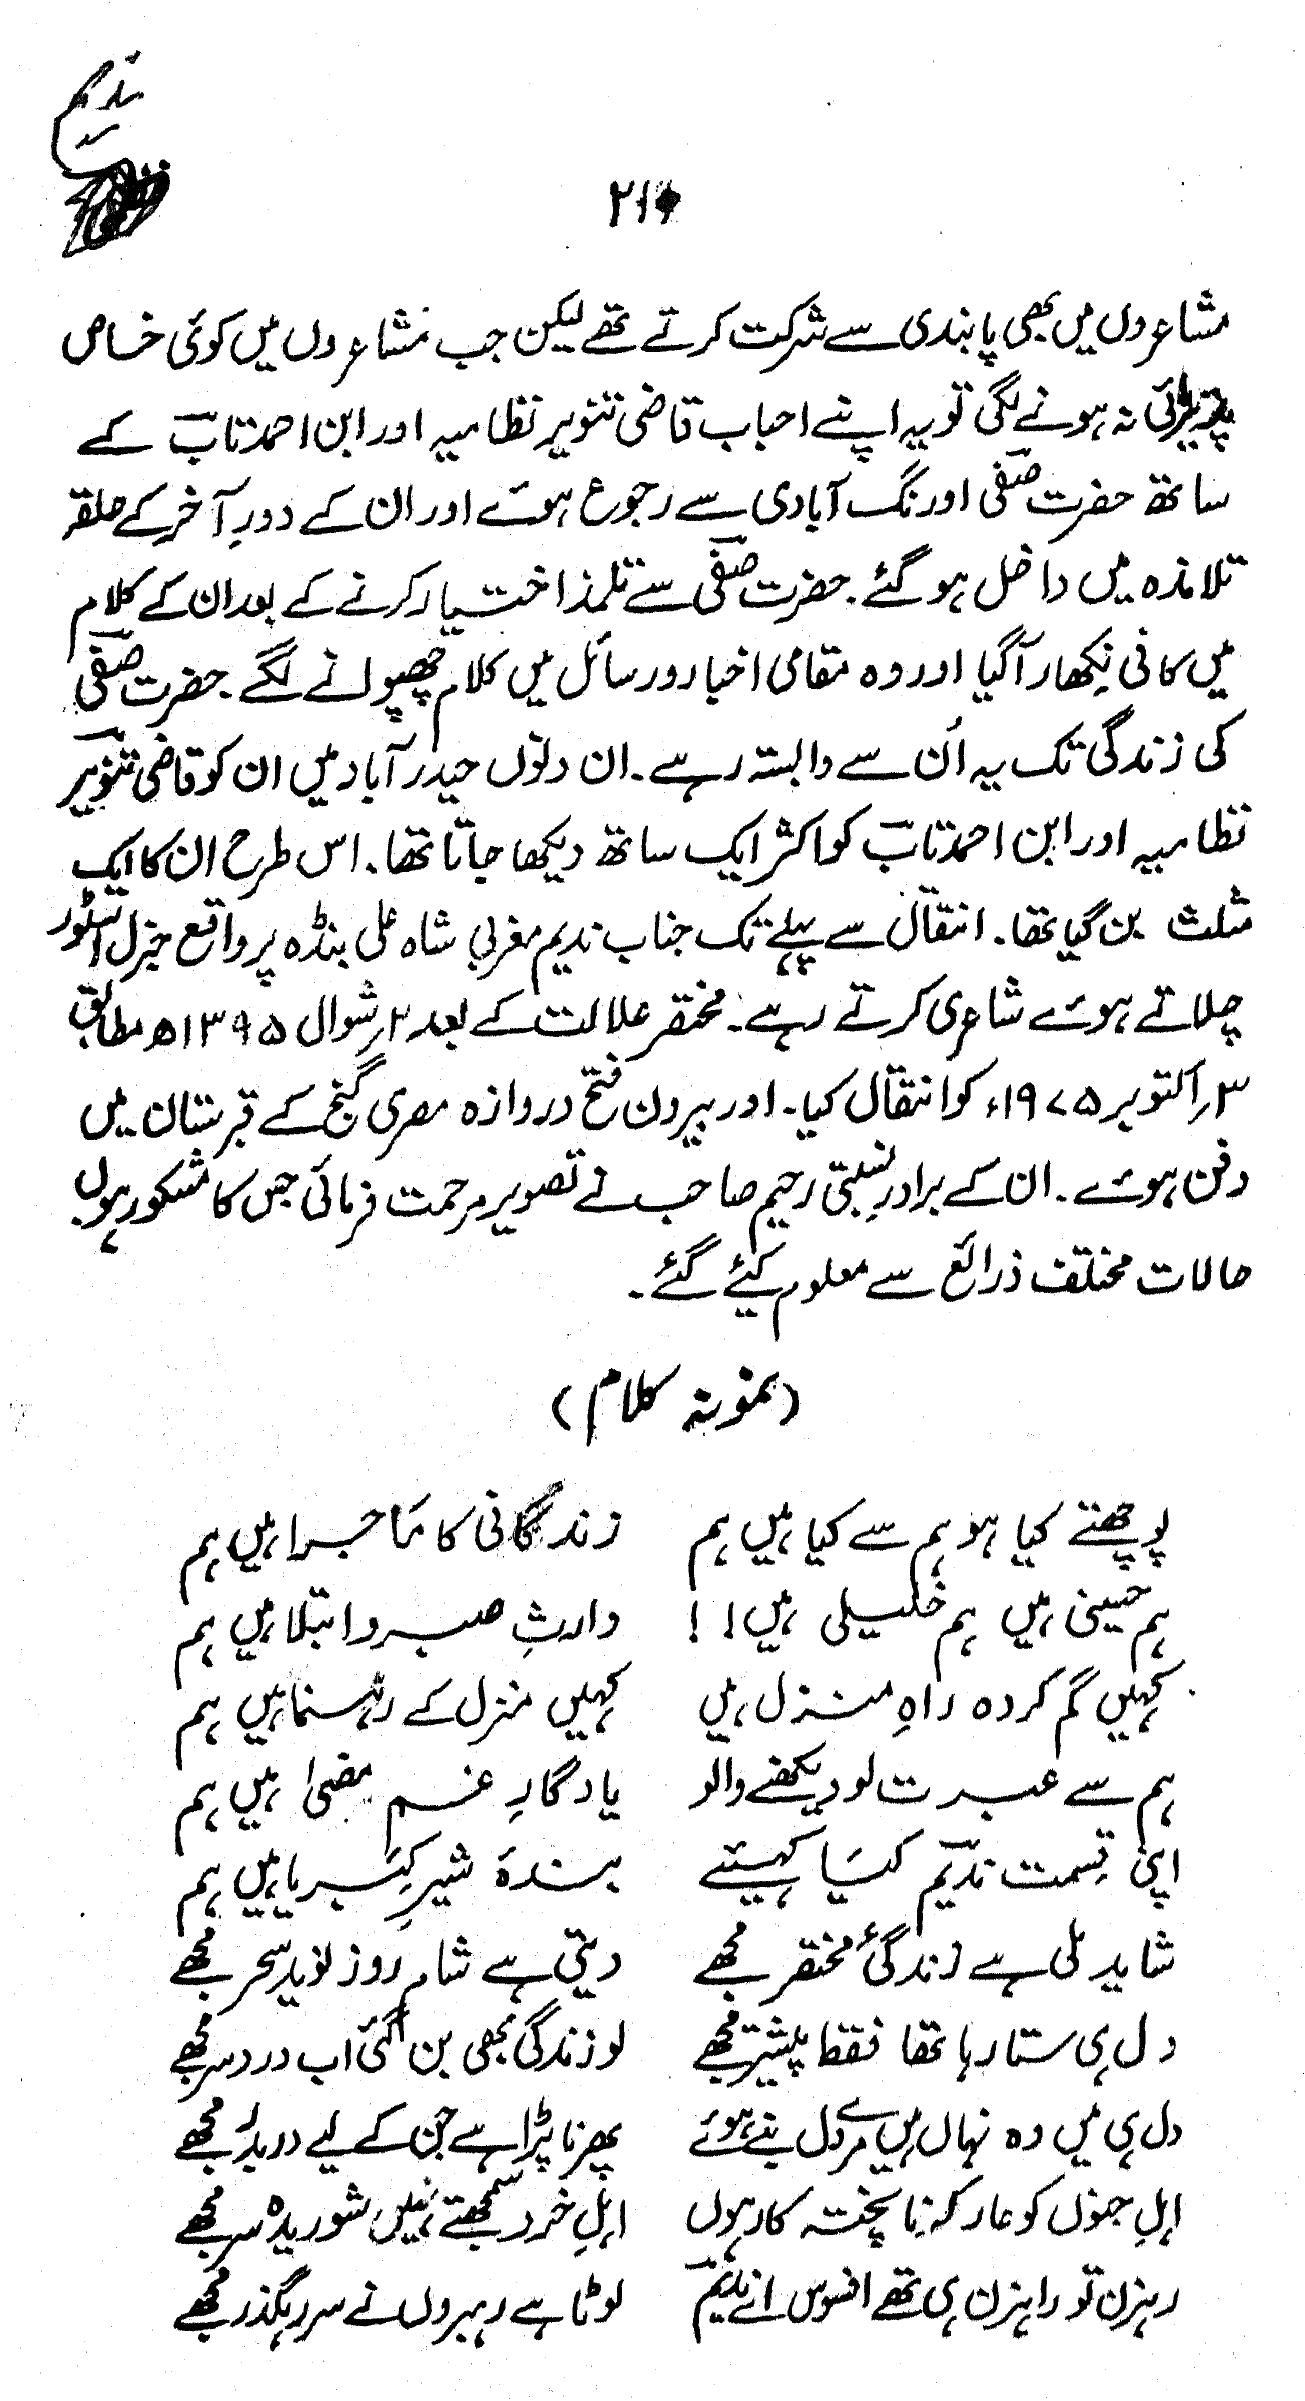 ندیم
۲۱۶
مشاعروں میں بھی پابندی سے شرکت کرتے تھے لیکن جب مشاعروں میں کوئی خاص
پذیرائی نہ ہونے لگی تو یہ اپنے احباب قاضی تنویر نظامیہ اور ابن احمد تابؔ کے
ساتھ حضرت صفیؔ اورنگ آبادی سے رجوع ہوئے اور ان کے دورِ آخر کے حلقہ
تلامذہ میں داخل ہو گئے۔ حضرت صفیؔ سے تلمذ اختیار کرنے کے بعد ان کے کلام
میں کافی نِکھار آگیا اور وہ مقامی اخبار و رسائل میں کلام چھپوانے لگے۔ حضرت صفیؔ
کی زندگی تک یہ اُن سے وابستہ رہے۔ ان دنوں حیدرآباد میں ان کو قاضی تنویرؔ
نظامیہ اور ابن احمد تابؔ کو اکثر ایک ساتھ دیکھا جاتا تھا۔ اس طرح ان کا ایک
مثلث بن گیا تھا۔ انتقال سے پہلے تک جناب ندیم مغربی شاہ علی بنڈہ پر واقع جنرل اسٹور
چلاتے ہوئے شاعری کرتے رہے۔ مختصر علالت کے بعد ۲؍شوال ۱۳۹۵ھ مطابق
۳؍اکتوبر ۱۹۷۵ء کو انتقال کیا۔ اور بیرون فتح دروازہ مصری گنج کے قبرستان میں
دفن ہوئے۔ ان کے برادرِ نسبتی رحیم صاحب نے تصویر مرحمت فرمائی جس کا مشکور ہوں
حالات مختلف ذرائع سے معلوم کیئے گئے۔
(نمونہ کلام)
پوچھتے کیا ہو ہم سے کیا ہیں ہم زندگانی کا مَاجرا ہیں ہم
ہم حسینی ہیں ہم خلیلی ہیں!! وارثِ صبر و ابتلا ہیں ہم
کہیں گم کردہ راہِ منزل ہیں کہیں منزل کے رہنما ہیں ہم
ہم سے عبرت لو دیکھنے والو یادگارِ غم مضیٰ ہیں ہم
اپنی قِسمت ندیمؔ کیَا کہیئے بندۂ شیرِ کِبریا ہیں ہم
شاید ملی ہے زندگیٔ مختصر مجھے دیتی ہے شام روز نوید سحر مجھے
دل ہی ستا رہا تھا فقط پیشتر مجھے لو زندگی بھی بن گئی اب دردسر مجھے
دل ہی میں وہ نہاں ہیں مرے دل بنے ہوئے پھرنا پڑا ہے جن کے لیے دربدر مجھے
اہلِ جنوں کو عار کہ ناپختہ کار ہوں اہلِ خرد سمجھتے نہیں شوریدہ سر مجھے
رہزن تو راہزن ہی تھے افسوس اے ندیمؔ لوٹا ہے رہبروں نے سر رہگذر مجھے